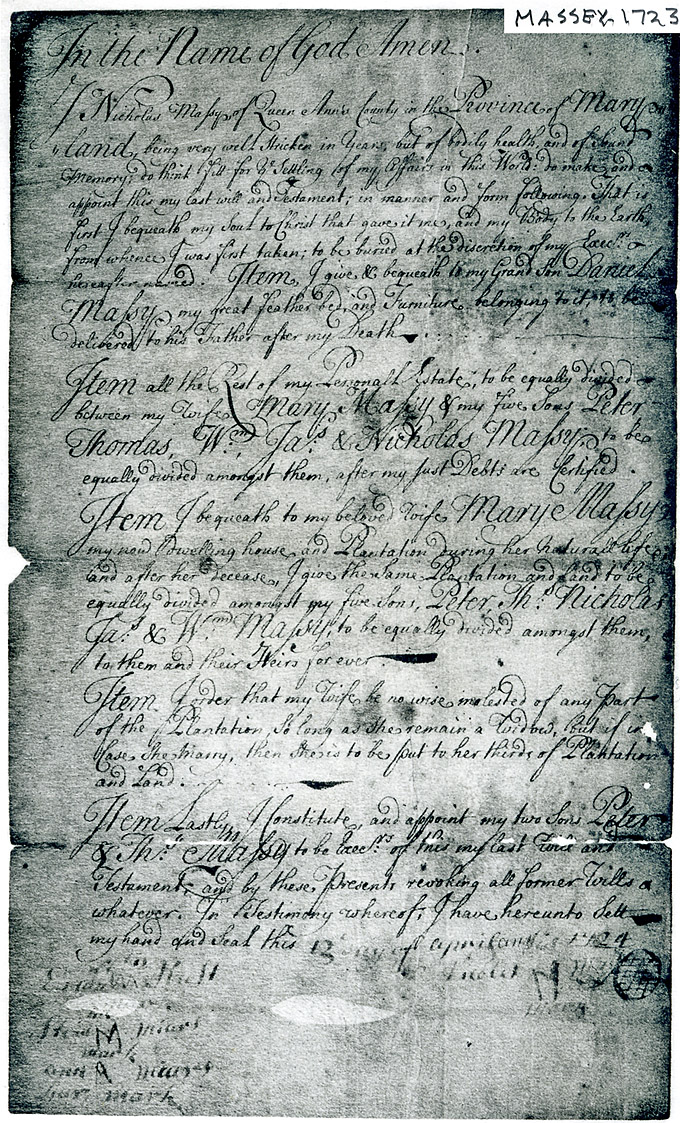 MASSEY 1723
In the Name of God Amen.
I Nicholas Massy of Queen Ann's County in the Province of Mary
land, being very well Stricken in Years, but of bodily health, and of Sound
Memory; do think fitt for ye Settling of my Affairs in this World: do make and
appoint this my last will and Testament; in manner and form following. That is
first I bequeath my Soul to Christ that gave it me, and my Body to the Earth
from whence I was first taken; to be buried at the discretion of my Execrs
hereafter named. Item, I give & bequeath to my Grand Son Daniel
Massy, my great feather bed, and Furniture belonging to it, to be
delivered to his Father after my Death
Item all the Rest of my Personall Estate, to be equally divided
between my Wife Mary Massy & my five Sons Peter
Thomas, Wm, Jas & Nicholas Massy, to be
equally divided amongst them, after my just Debts are Certified.
Item I bequeath to my beloved Wife Marye Massy,
my now Dwelling house, and Plantation during her naturall life
and after her decease, I give the same Plantation and Land to be
equally divided amongst my five Sons, Peter, Ths Nicholas
Jas & Wm Massy, to be equally divided amongst them,
to them and their Heirs for ever.
Item I order that my Wife be no wise molested of any Part
of the Plantation, So long as she remain a Widow, but if in
Case She Marry, then She is to be put to her thirds of Plantation
and Land.
Item Lastly, I Constitute, and appoint my two Sons Peter
& Ths Massy to be Execrs of this my last Will and
Testament, and by these Presents revoking all former Wills
whatever. In Testimony whereof, I have hereunto Sett
my hand and Seal this 12 day of April 1724
M
M mark
mark